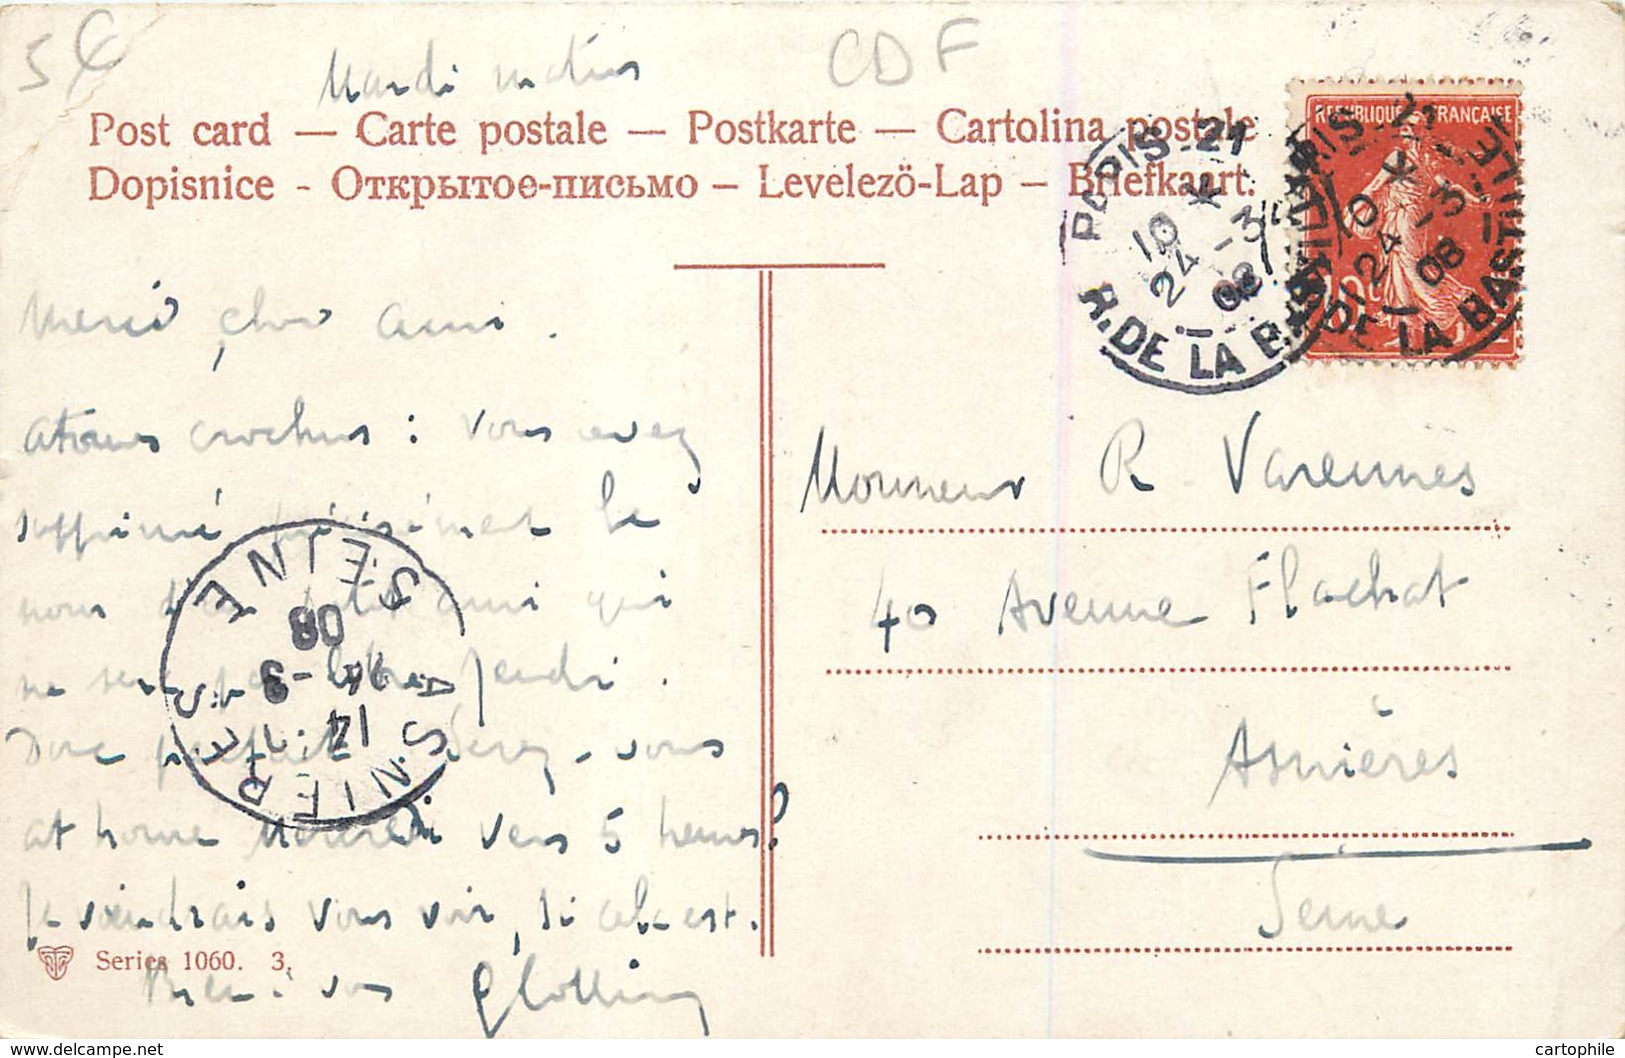 5€
CDF
Mardi matin
Post card — Carte postale — Postkarte — Cartolina postale
Dopisnice - Открытое-письмо – Levelezö-Lap – Briefkaart.
REPUBLIQUE FRANÇAISE
PARIS-21
10 *
24 -3
08
R. DE LA BASTILLE
PARIS-21
10 *
24 -3
08
R. DE LA BASTILLE
Merci, cher ami.
atomes crochus : vous avez
supprimé précisément le
nom d'un petit ami qui
ne sera pas libre jeudi.
Donc parfait. Serez-vous
at home Mercredi vers 5 heures?
Je viendrais vous voir, si cela est.
Bien à vous
Monsieur R Varennes
40 Avenue Flachat
Asnières
Seine
ASNIERES
SEINE
24 -3
08
Series 1060. 3.
cartophile